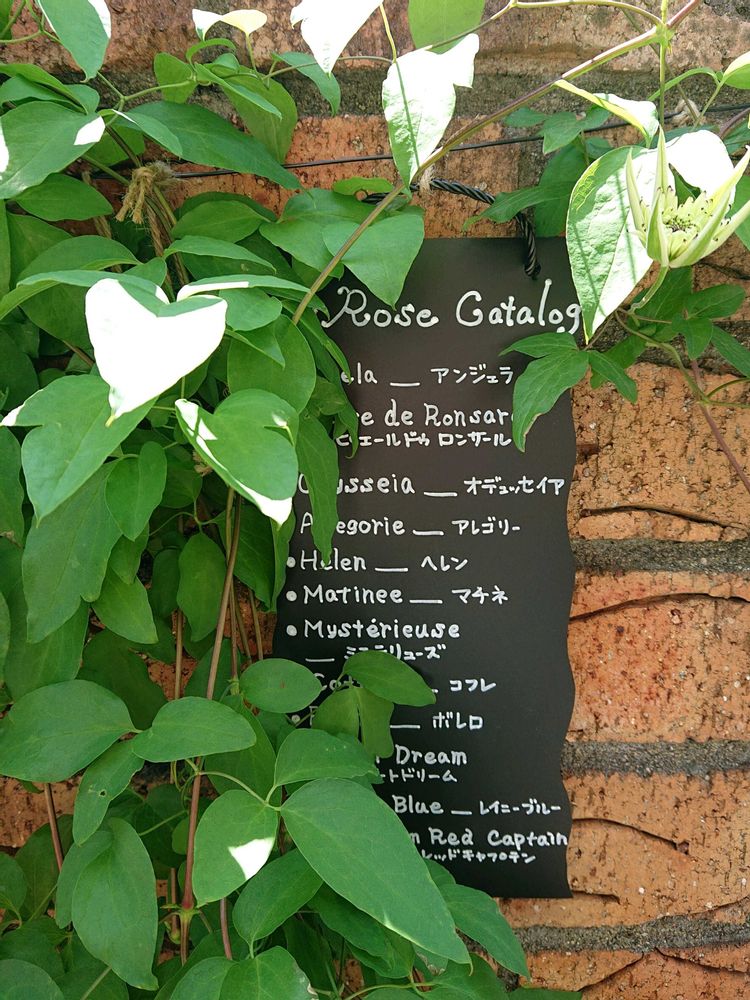 Rose Catalog
ela — アンジェラ
re de Ronsar
ピエールドゥ ロンサール
Odysseia — オデュッセイア
• Allegorie — アレゴリー
• Helen — ヘレン
• Matinee — マチネ
• Mystérieuse
— ミステリューズ
— コフレ
— ボレロ
Dream
ートドリーム
Blue — レイニーブルー
n Red Captain
レッドキャプテン